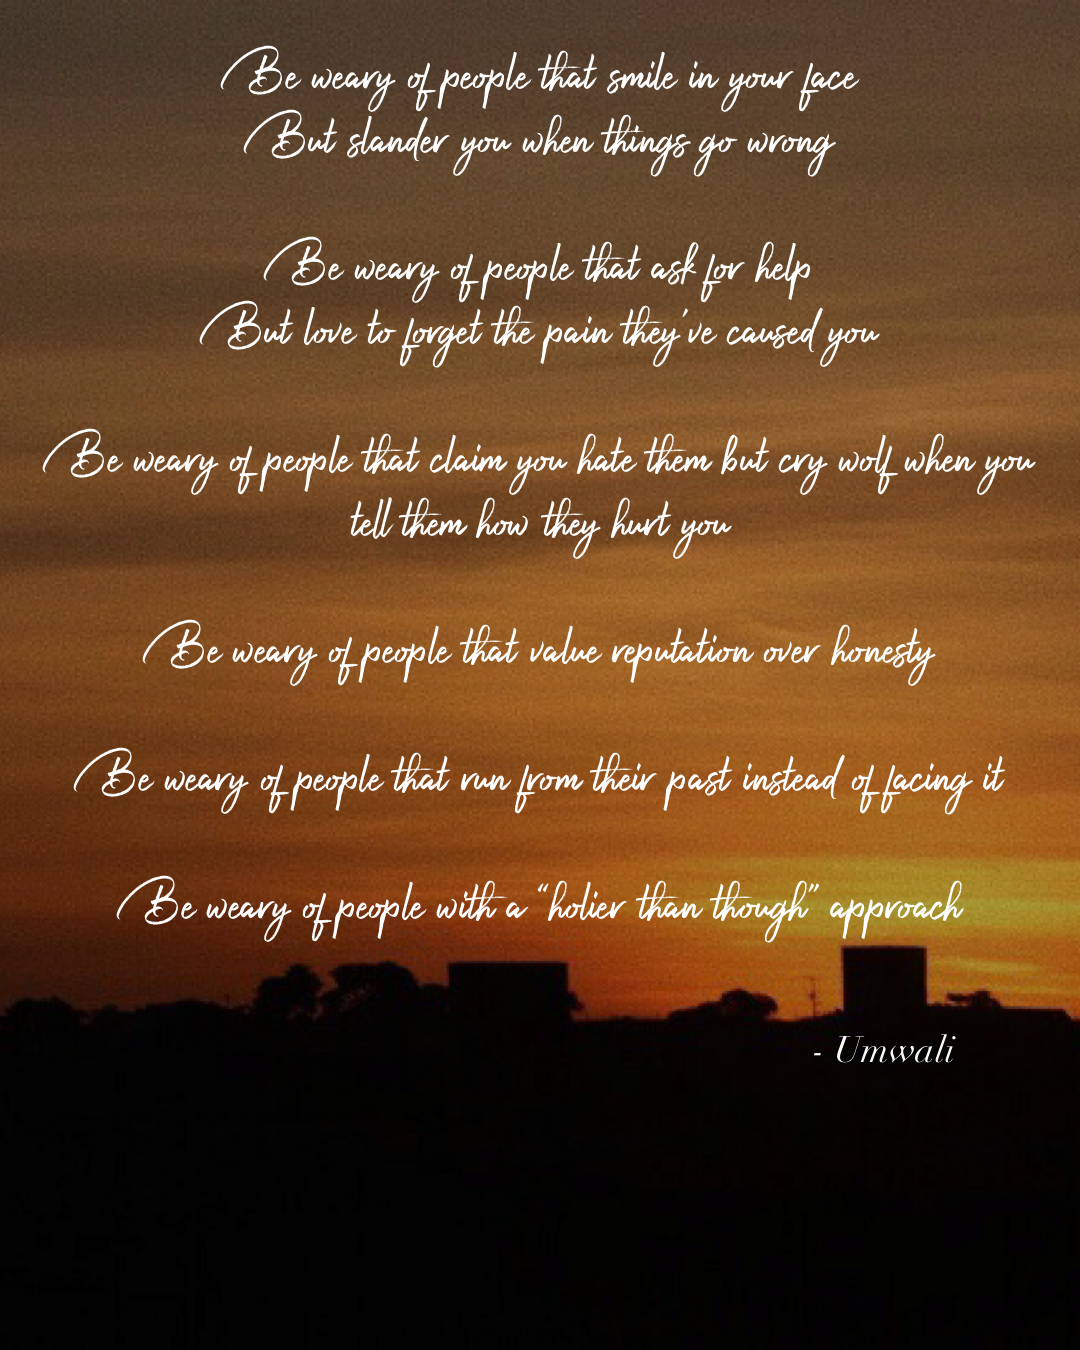 Be weary of people that smile in your face
But slander you when things go wrong
Be weary of people that ask for help
But love to forget the pain they've caused you
Be weary of people that claim you hate them but cry wolf when you
tell them how they hurt you
Be weary of people that value reputation over honesty
Be weary of people that run from their past instead of facing it
Be weary of people with a “holier than though” approach
- Umwali